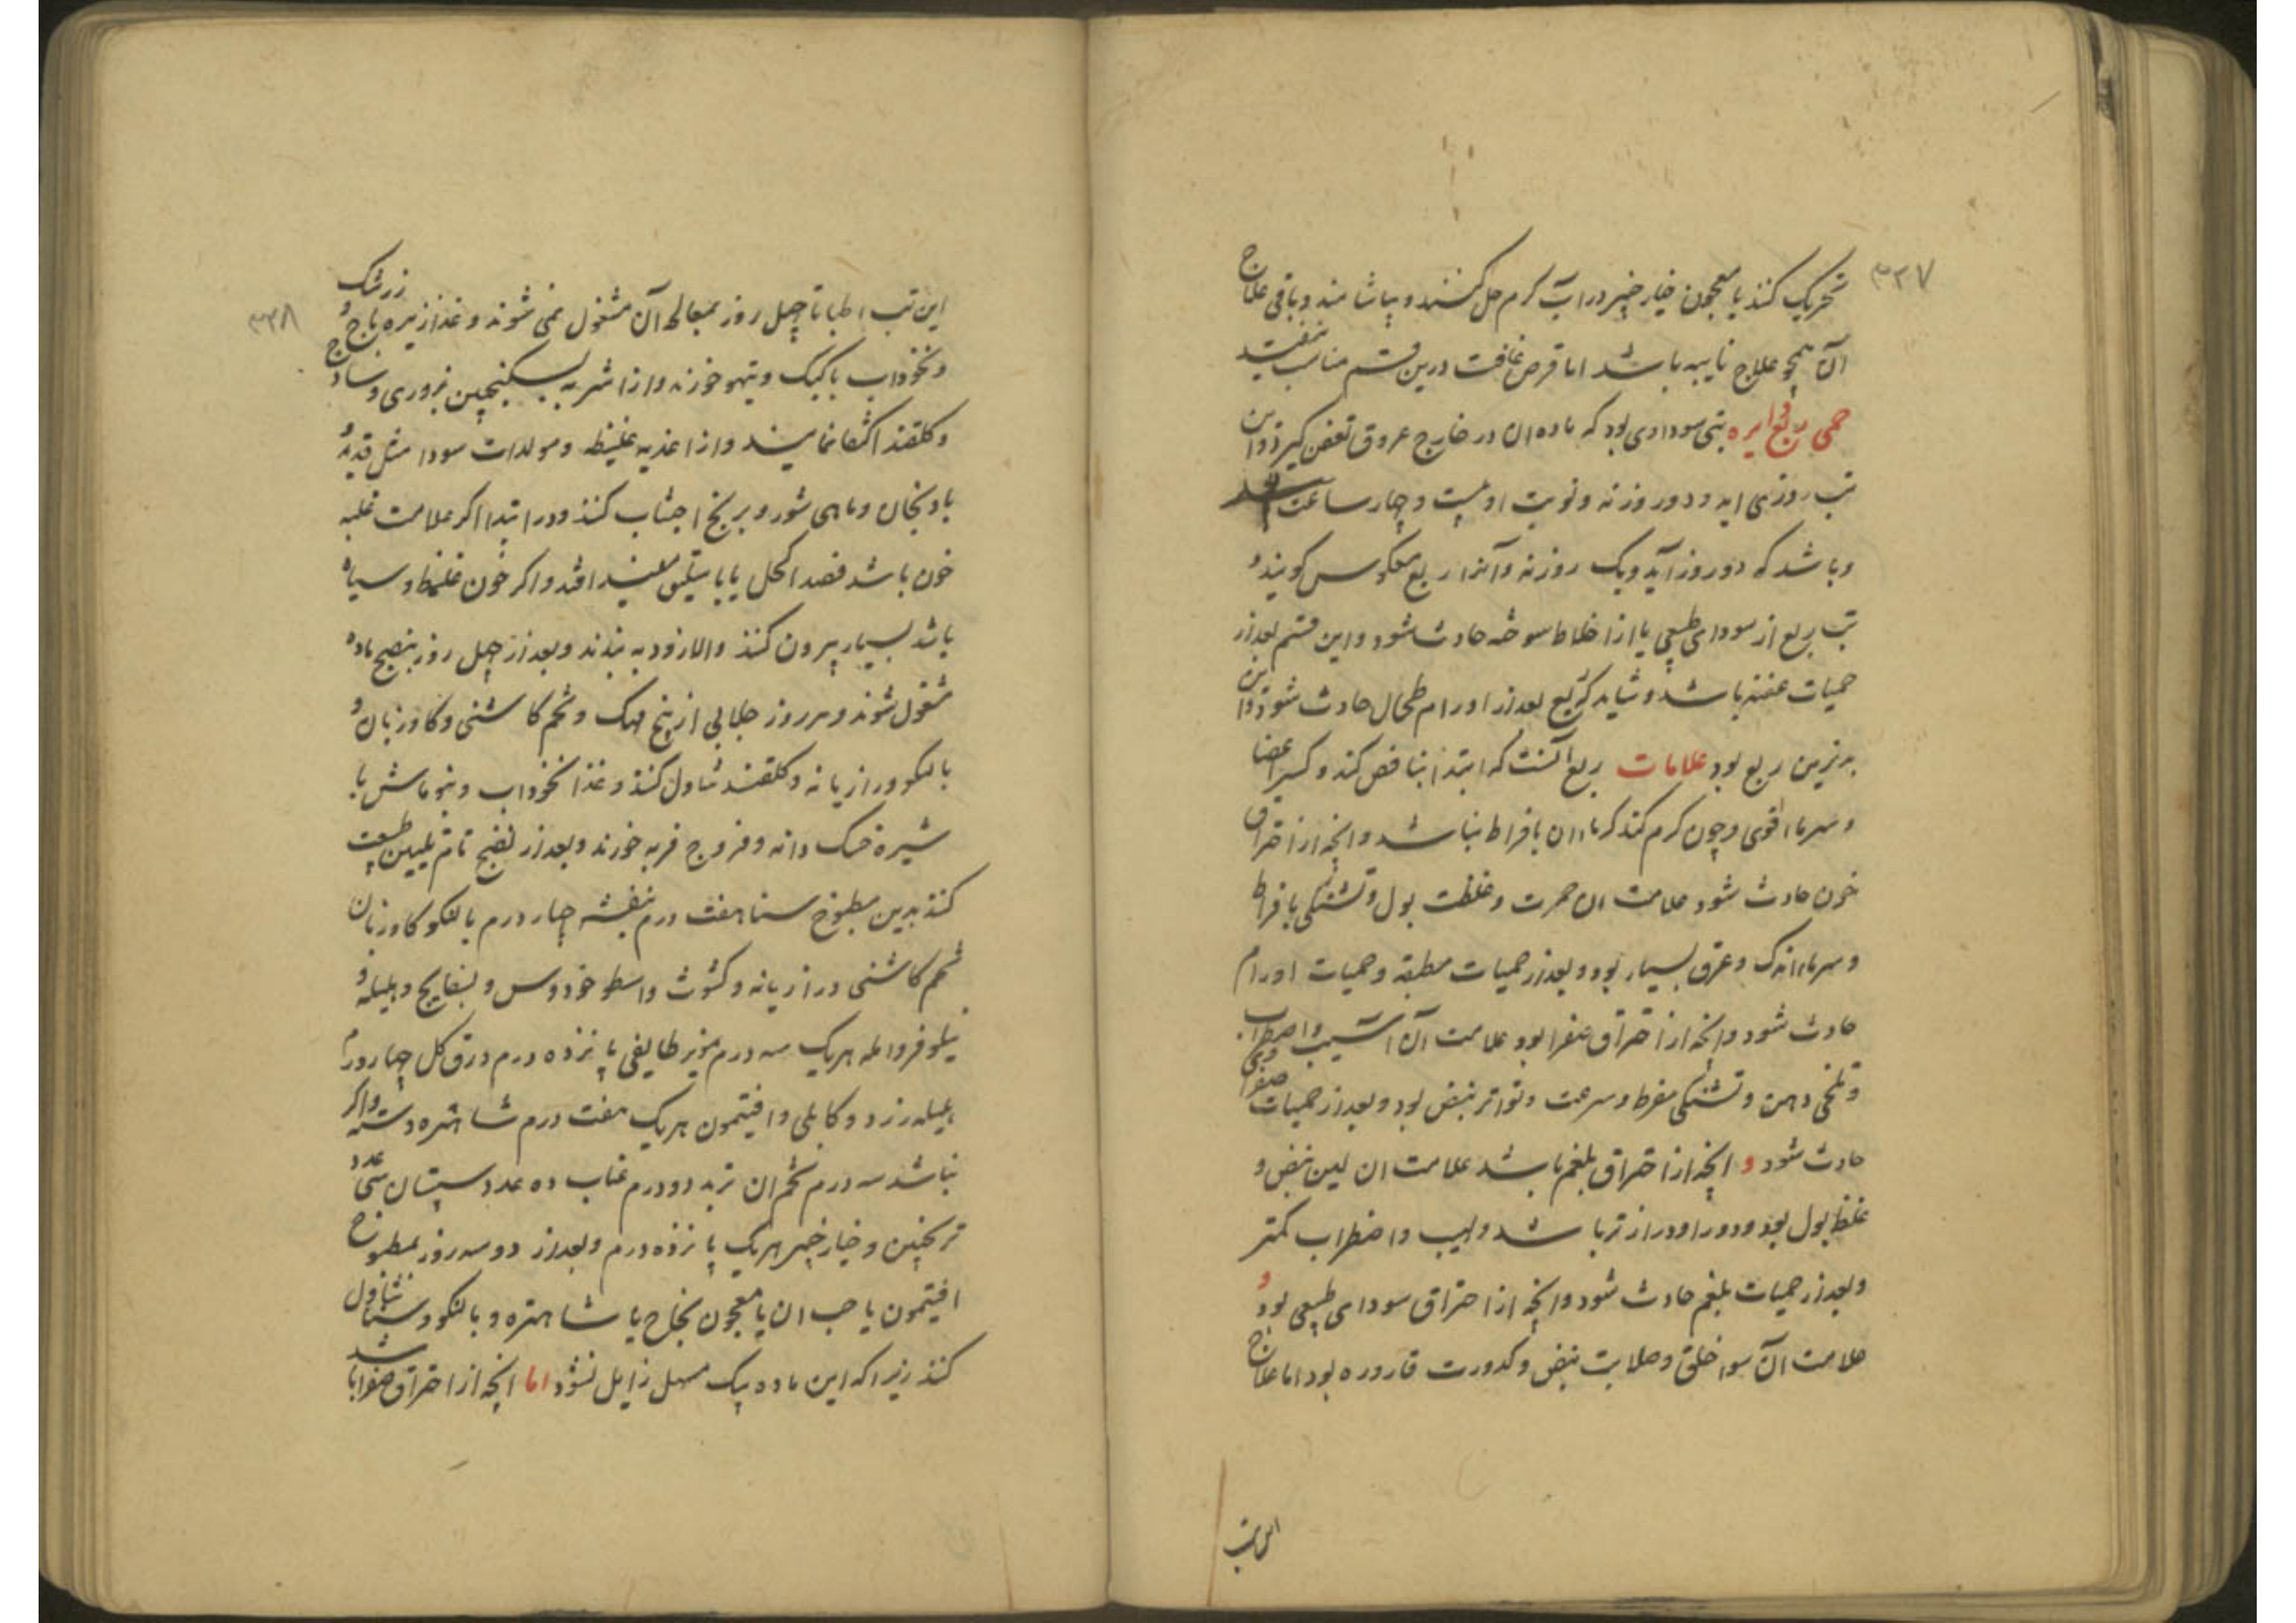 ۳۳۷
تحریک کنند یا معجون خیارچنبر در آب گرم حل کنند و بیاشامند و باقی علاج
آن همچو علاج نایبه باشد اما قرص غافث درین قسم مناسب نیفتد
حمی ربع دایره تبی سوداوی بود که ماده ان در خارج عروق تعفن گیرد و این
تب روزی اید و دو روز نه و نوبت او بیست و چهار ساعت
و باشد که دو روز آید و یک روز نه و آنرا ربع معکوس گویند و
تب ربع از سودای طبیعی یا از اخلاط سوخته حادث شود و این قسم بعد از
حمیات عفنه باشد و شاید که ربع بعد از اورام طحال حادث شود و این
بدترین ربع بود علامات ربع آنست که ابتدا بنافض کند و کسر اعضا
و سرما قوی و چون گرم کند گرما ان بافراط نباشد و انچه از احتراق
خون حادث شود علامت ان حمرت و غلظت بول و تشنگی بافراط
و سرما اندک و عرق بسیار بود و بعد از حمیات مطبقه و حمیات اورام
حادث شود و انچه از احتراق صفرا بود علامت آن و اضطراب
و تلخی دهن و تشنگی مفرط و سرعت و تواتر نبض بود و بعد از حمیات صفراوی
حادث شود و انچه از احتراق بلغم باشد علامت ان لین نبض و
غلظ بول بود و دور او دراز تر باشد و لهیب و اضطراب کمتر
و بعد از حمیات بلغم حادث شود و انچه از احتراق سودای طبیعی بود و
علامت آن سوا خلق و صلابت نبض و کدورت قاروره بود اما علاج
این تب
۳۳۸
این تب اطبا تا چهل روز بمعالجه آن مشغول نمی شوند و غذا زیره باج و زرشک
و نخوداب با کبک و تیهو خورند و از اشربه بسکنجبین بزوری و ساذج
و گلقند اکتفا نمایند و از اغذیه غلیظه و مولدات سودا مثل قدید و
بادنجان و ماهی شور و برنج اجتناب کنند و در ابتدا اگر علامت غلبه
خون باشد فصد اکحل یا باسلیق مفید افتد و اگر خون غلیظ و سیاه
باشد بسیار بیرون کنند والا زود به بندند و بعد از چهل روز بنضج ماده
مشغول شوند و هر روز جلابی از بیخ مهک و تخم کاشنی و کاوزبان و
بالنکو و رازیانه و گلقند تناول کنند و غذا نخوداب و بنوماش با
شیره خسک دانه و فروج فربه خورند و بعد از نضج تام تلیین طبیعت
کنند بدین مطبوخ سنا هفت درم بنفشه چهار درم بالنکو کاوزبان
تخم کاشنی و رازیانه و کشوث و اسطوخودوس و بسفایج و هلیله و
نیلوفر و امله هریک سه درم مویز طایفی پانزده درم ورق گل چهار درم
هلیله زرد و کابلی و افتیمون هریک هفت درم شاهتره دسته و اگر
نباشد سه درم تخم ان تربد دو درم عناب ده عدد سپستان سی عدد
ترنجبین و خیارچنبر هریک پانزده درم و بعد از دو سه روز بمطبوخ
افتیمون یا حب ان یا معجون نجاح یا شاهتره و بالنکو و سنا تناول
کنند زیرا که این ماده بیک مسهل زایل نشود اما انچه از احتراق صفرا باشد